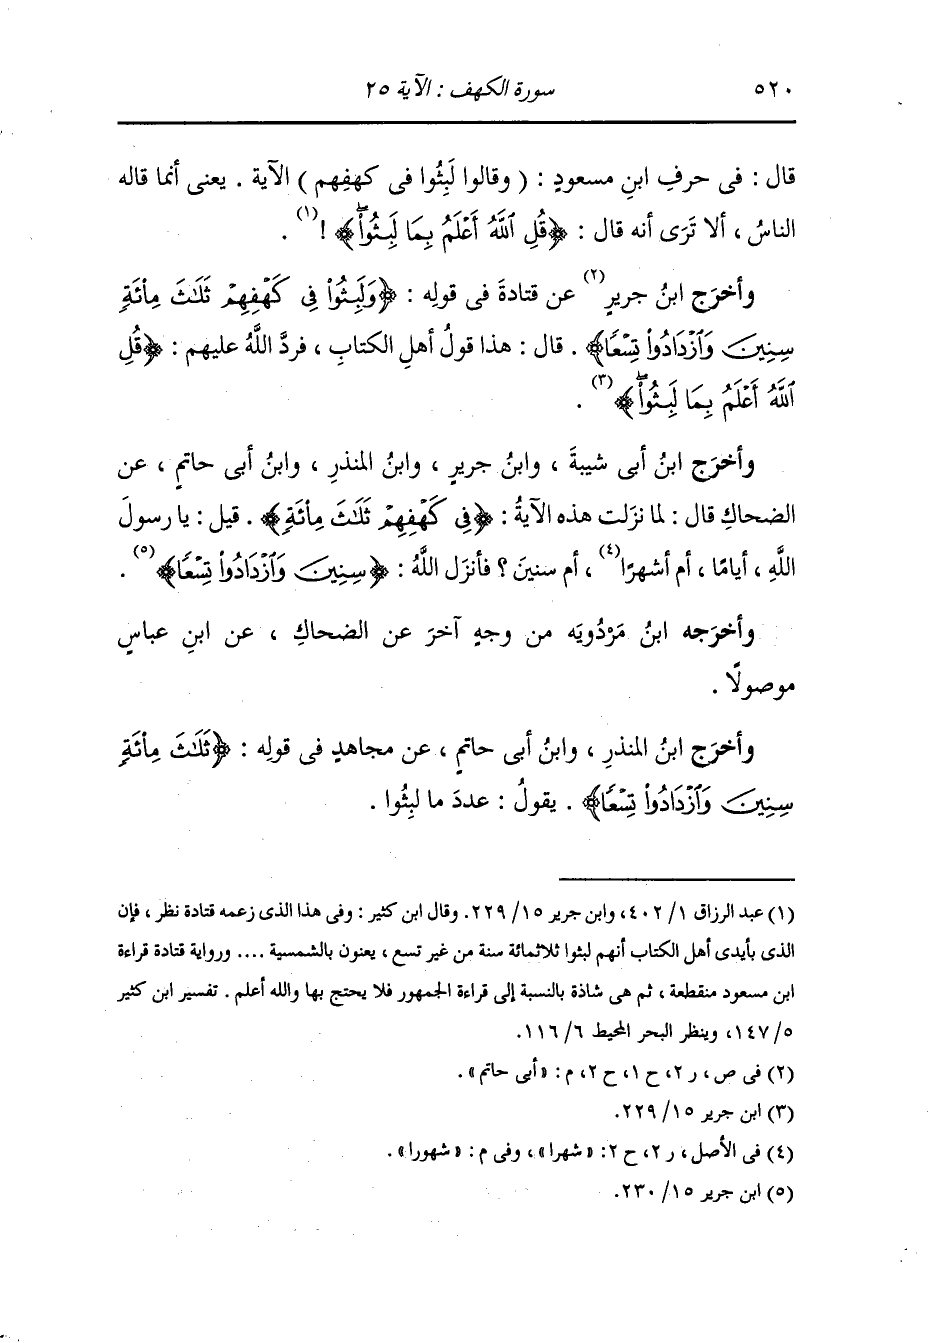 ٥٢٠ سورة الكهف : الآية ٢٥
قال : فى حرفِ ابنِ مسعودٍ : ( وقالوا لَبِثُوا فى كهفِهم ) الآية . يعنى أنما قاله
الناسُ ، ألا تَرَى أنه قال : ﴿قُلِ ٱللَّهُ أَعْلَمُ بِمَا لَبِثُوا۟ۖ﴾ !(١) .
وأخرَج ابنُ جريرٍ(٢) عن قتادةَ فى قولِه : ﴿وَلَبِثُوا۟ فِى كَهْفِهِمْ ثَلَٰثَ مِا۟ئَةٍ
سِنِينَ وَٱزْدَادُوا۟ تِسْعًا﴾ . قال : هذا قولُ أهلِ الكتابِ ، فردَّ اللَّهُ عليهم : ﴿قُلِ
ٱللَّهُ أَعْلَمُ بِمَا لَبِثُوا۟ۖ﴾(٣) .
وأخرَج ابنُ أبى شيبةَ ، وابنُ جريرٍ ، وابنُ المنذرِ ، وابنُ أبى حاتمٍ ، عن
الضحاكِ قال : لما نزَلت هذه الآيةُ : ﴿فِى كَهْفِهِمْ ثَلَٰثَ مِا۟ئَةٍ﴾ . قيل : يا رسولَ
اللَّهِ ، أيامًا ، أم أشهرًا(٤) ، أم سنينَ ؟ فأنزَل اللَّهُ : ﴿سِنِينَ وَٱزْدَادُوا۟ تِسْعًا﴾(٥) .
وأخرَجه ابنُ مَرْدُويَه من وجهٍ آخرَ عن الضحاكِ ، عن ابنِ عباسٍ
موصولًا .
وأخرَج ابنُ المنذرِ ، وابنُ أبى حاتمٍ ، عن مجاهدٍ فى قولِه : ﴿ثَلَٰثَ مِا۟ئَةٍ
سِنِينَ وَٱزْدَادُوا۟ تِسْعًا﴾ . يقولُ : عددَ ما لبِثُوا .
(١) عبد الرزاق ١/ ٤٠٢، وابن جرير ١٥/ ٢٢٩. وقال ابن كثير : وفى هذا الذى زعمه قتادة نظر ، فإن
الذى بأيدى أهل الكتاب أنهم لبثوا ثلاثمائة سنة من غير تسع ، يعنون بالشمسية .... ورواية قتادة قراءة
ابن مسعود منقطعة ، ثم هى شاذة بالنسبة إلى قراءة الجمهور فلا يحتج بها والله أعلم . تفسير ابن كثير
٥/ ١٤٧، وينظر البحر المحيط ٦/ ١١٦.
(٢) فى ص ، ر ٢، ح ١، ح ٢، م : «أبى حاتم» .
(٣) ابن جرير ١٥/ ٢٢٩.
(٤) فى الأصل ، ر ٢، ح ٢: «شهرا» ، وفى م : «شهورا» .
(٥) ابن جرير ١٥/ ٢٣٠.